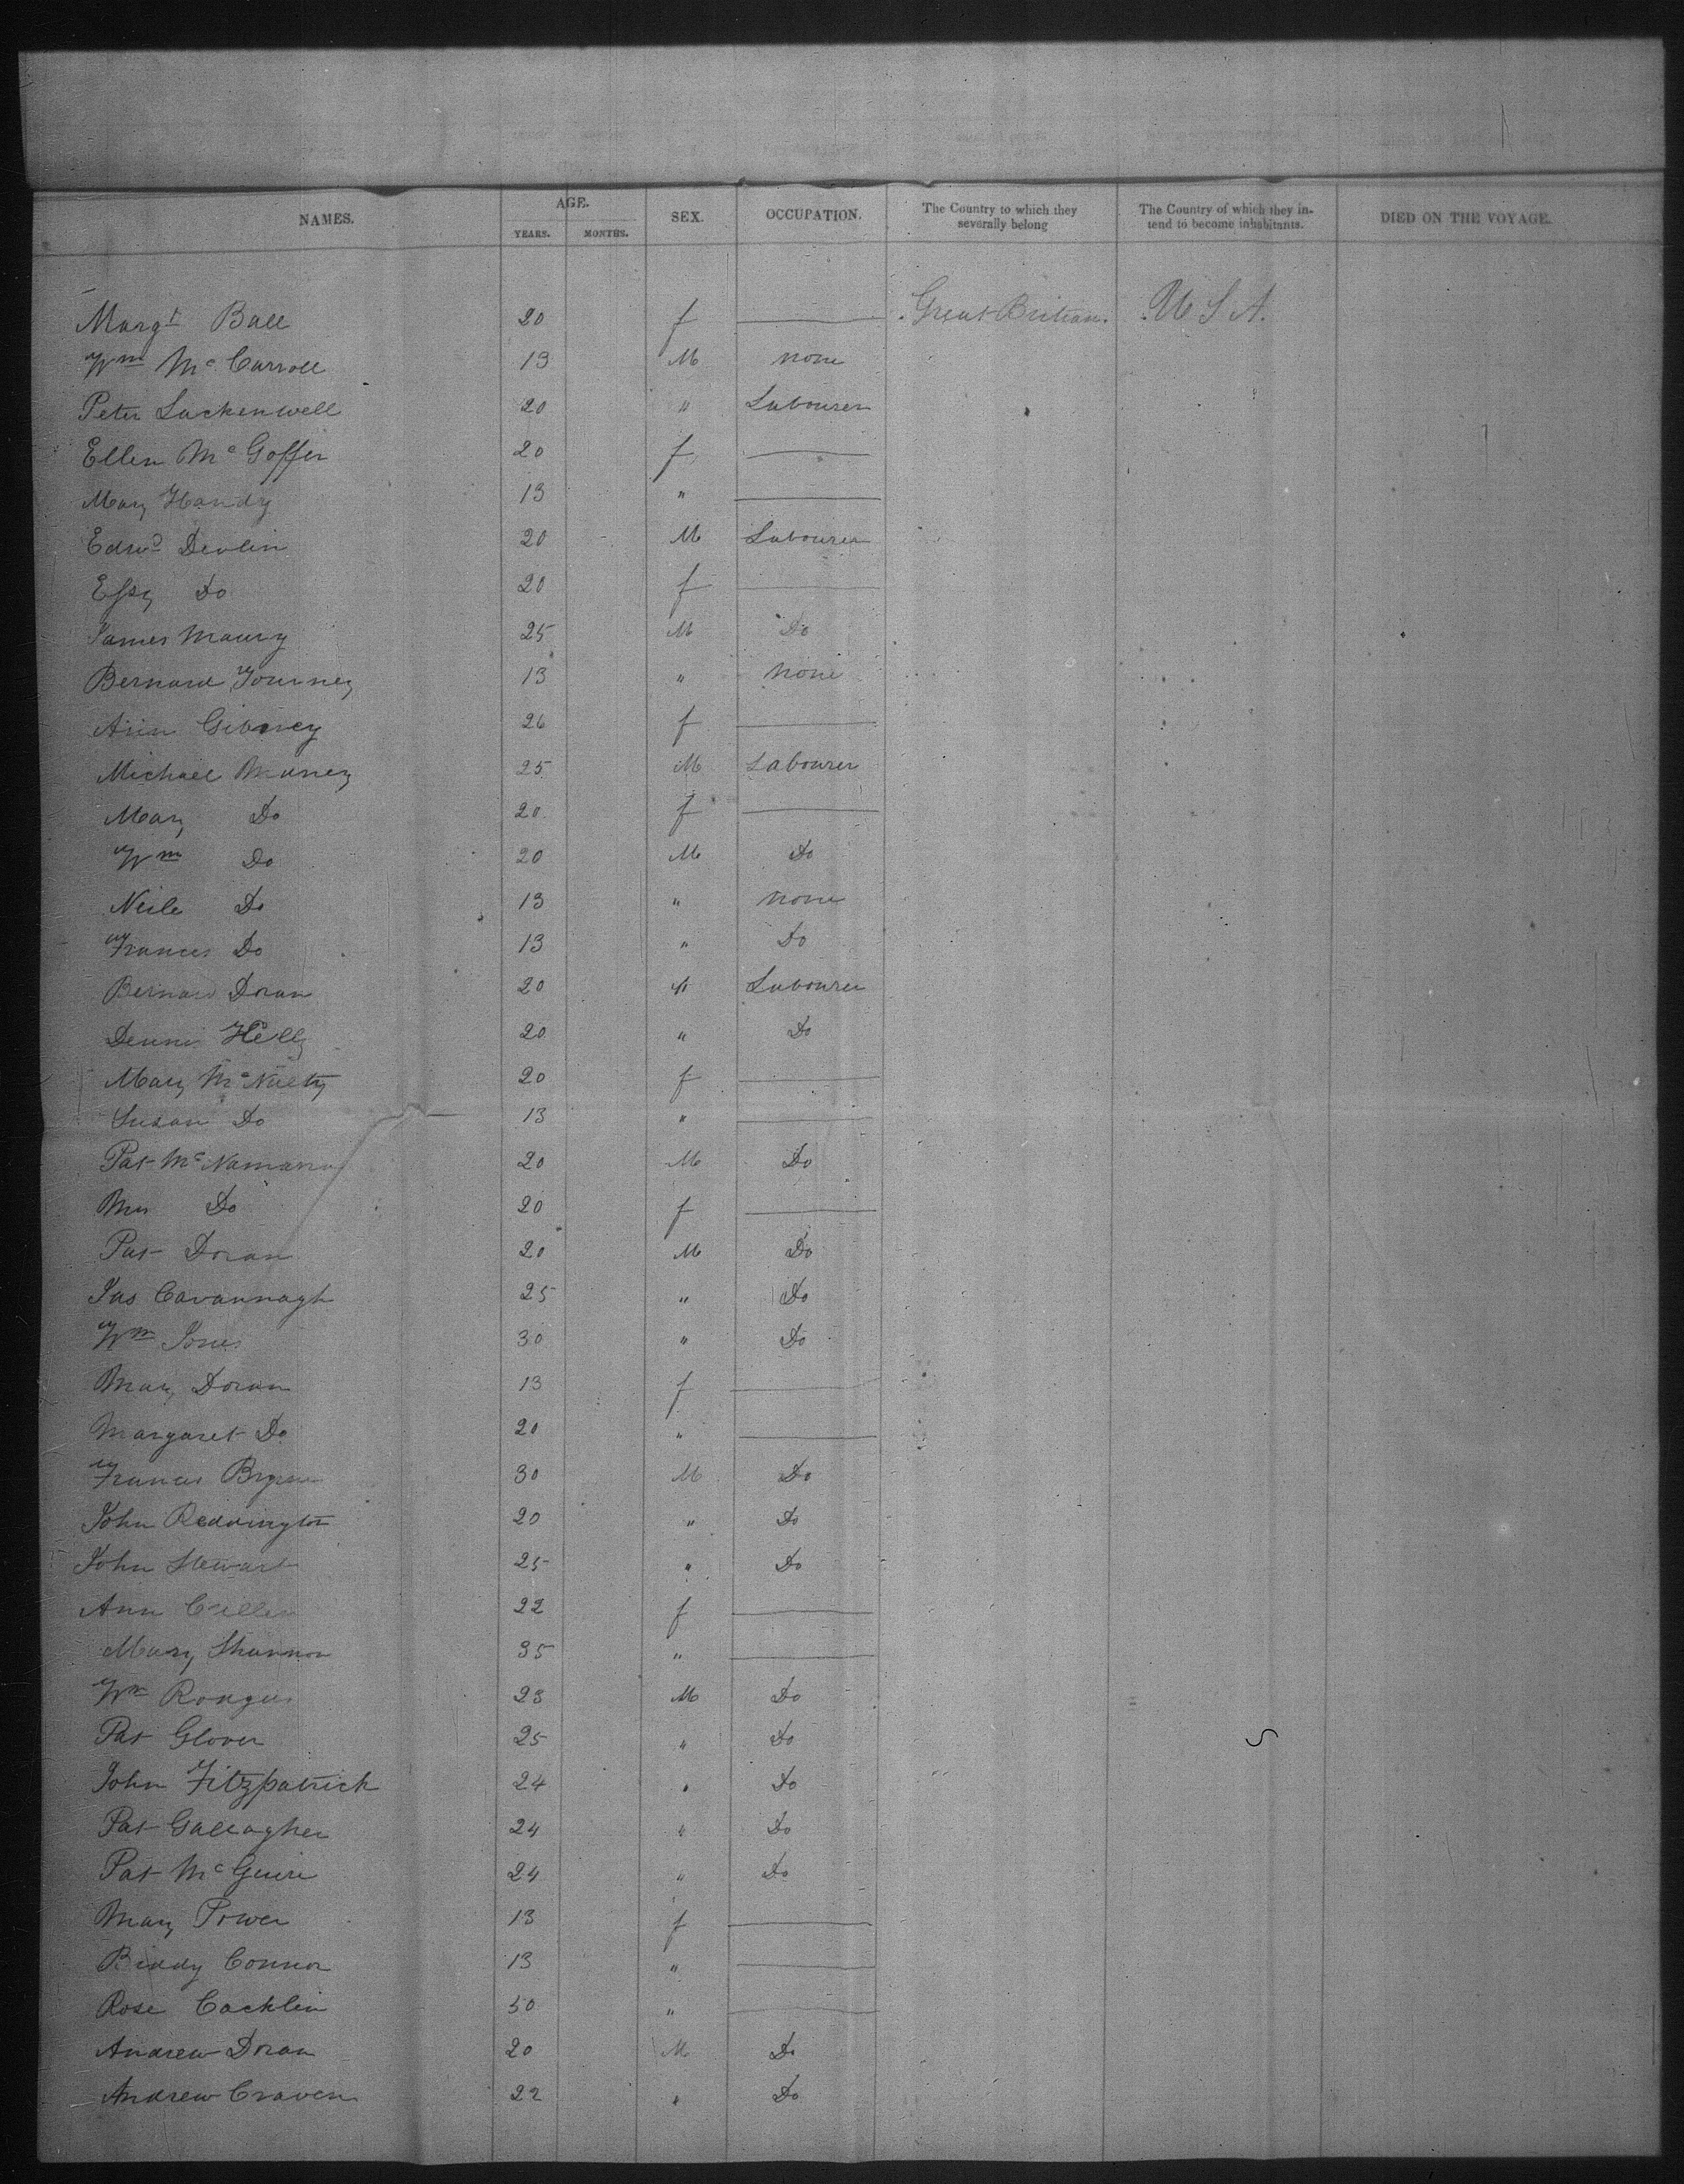 NAMES. AGE. SEX. OCCUPATION. The Country to which they severally belong The Country of which they in-tend to become inhabitants. DIED ON THE VOYAGE.
YEARS. MONTHS.
Margt Ball 20 f — Great Britian. U S A.
Wm Mc Carroll 13 M none
Peter Lackenwell 20 " Labourer
Ellen Mc Goffer 20 f —
Mary Handy 13 " —
Edwd Devlin 20 M Labourer
Essy Do 20 f —
James Maury 25 M Do
Bernard 13 " none
Ann Gibney 26 f —
Michael Muney 25 M Labourer
Mary Do 20 f —
Wm Do 20 M Do
Neile Do 13 " none
Frances Do 13 " Do
Bernard Doran 20 " Labourer
Dennis Helly 20 " Do
Mary Mc Nulty 20 f —
Susan Do 13 " —
Pat Mc Namara 20 M Do
Mrs Do 20 f —
Pat Doran 20 M Do
Jas Cavannagh 25 " Do
Wm Jones 30 " Do
Mary Doran 13 f —
Margaret Do 20 " —
Francis Bryne 30 M Do
John Reddington 20 " Do
John Stewart 25 " Do
Ann Cullen 22 f —
Mary Shannon 35 " —
Wm 23 M Do
Pat Glover 25 " Do
John Fitzpatrick 24 " Do
Pat Gallagher 24 " Do
Pat Mc Guire 24 " Do
Mary Power 13 f —
Biddy Connor 13 " —
Rose Cacklin 50 " —
Andrew Doran 20 M Do
Andrew Craven 22 " Do